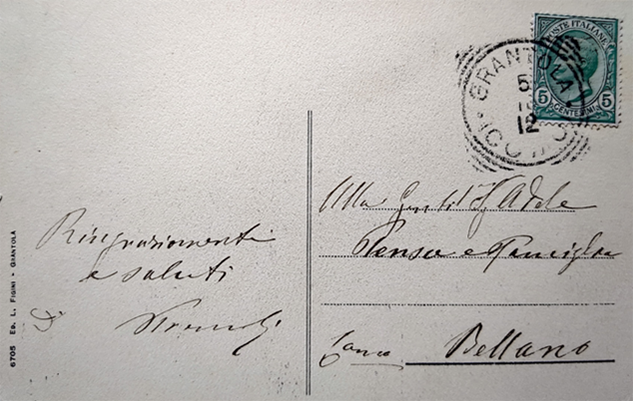 POSTE ITALIANE
5 CENTESIMI 5
GRANTOLA
5
12
(COMO)
Ringraziamenti
e saluti
Alla Gentil Adele
e Famiglia
Bellano
6705 ED. L. FIGINI - GRANTOLA